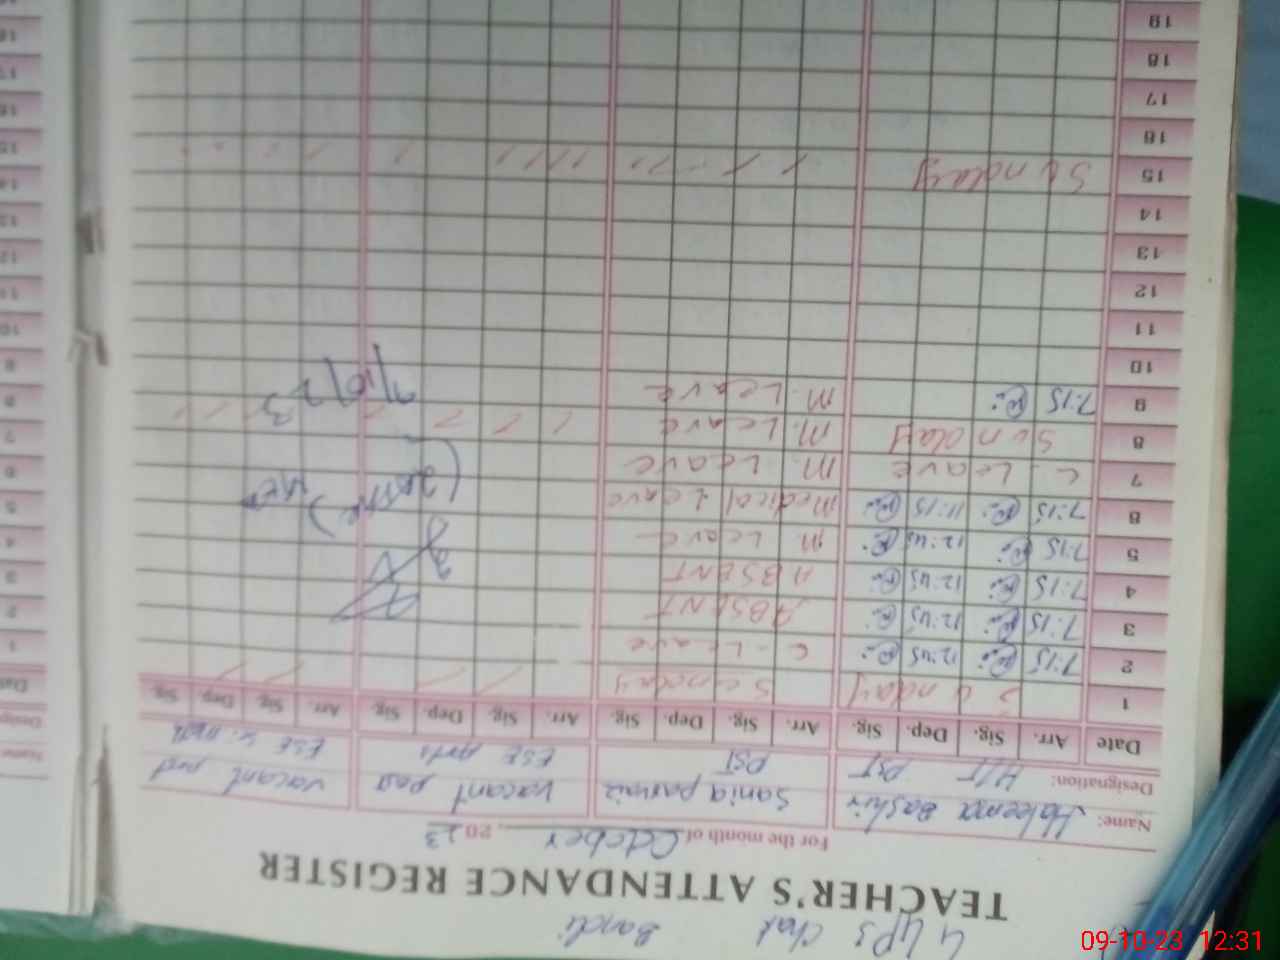 Chak Bandi
TEACHER'S ATTENDANCE REGISTER
For the month of October 2023
Name: Haleema Bashir Sania parvaiz vacant post vacant post
Designation: H/T PST PST ESE Arts ESE
Date Arr. Sig. Dep. Sig. Arr. Sig. Dep. Sig. Arr. Sig. Dep. Sig. Arr. Sig. Dep. Sig.
1 Sunday Sunday
2 7:15 12:45 C-Leave
3 7:15 12:45 ABSENT
4 7:15 12:45 ABSENT
5 7:15 12:45 M. Leave
6 7:15 11:15 Medical Leave
7 C. Leave M. Leave
8 Sunday M. Leave
9 7:15 M. Leave
7/10/23
10
11
12
13
14
15 Sunday
16
17
18
19
Name
Designa
Date
1
2
3
4
5
6
7
8
9
10
11
12
13
14
15
16
17
18
09-10-23 12:31